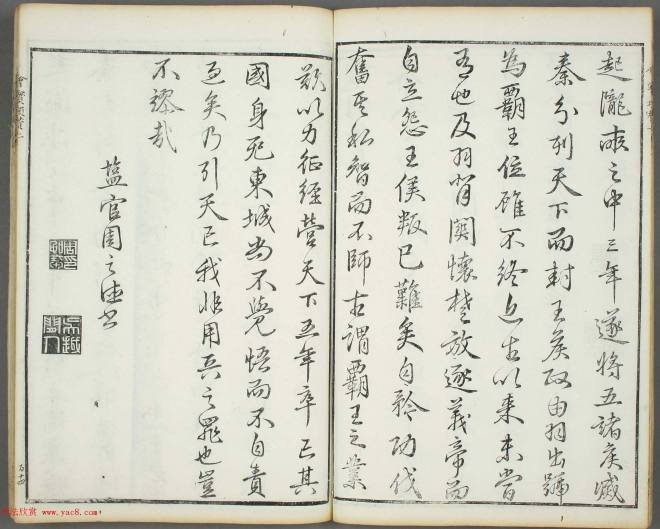 起隴畝之中三年遂將五諸侯滅
秦分列天下而封王侯政由羽出號
為霸王位雖不終近古以來未嘗
有也及羽背關懷楚放逐義帝而
自立怨王侯叛已難矣自矜功伐
奮其私智而不師古謂霸王之業
欲以力征經營天下五年卒亡其
國身死東城尚不覺悟而不自責
過矣乃引天亡我非用兵之罪也豈
不謬哉
鹽官周之德書
法欣赏 www.yac8.com】